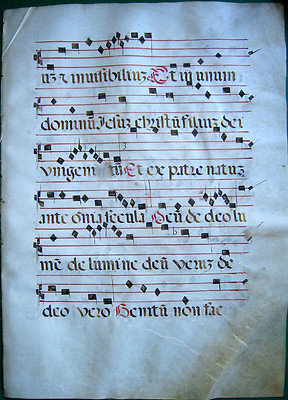 uz ⁊ inuisibiliuz Et in unum
dominū Jesuz christū filiuz dei
vnigeni tū Et ex patre natuz
ante oīa secula Deū de deo lu
mē de lumine deū veruz de
deo vero Genitū non fac